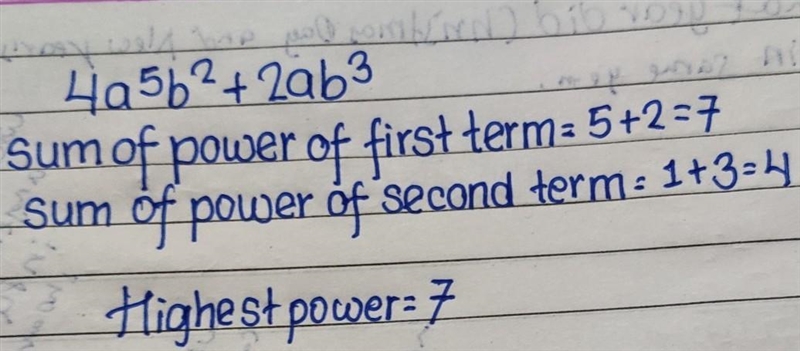 4a⁵b² + 2ab³
sum of power of first term = 5+2=7
sum of power of second term = 1+3=4
Highest power = 7